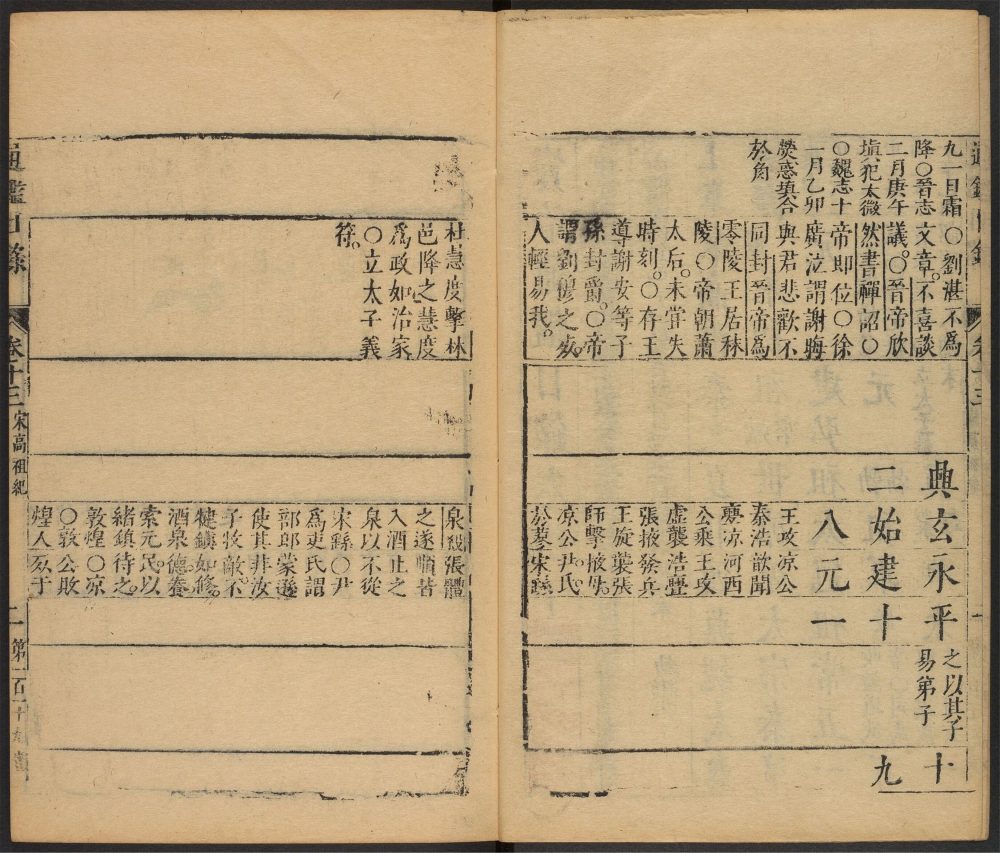 九一日霜
降○晉志
二月庚午
塡犯太微
○魏志十
一月乙卯
熒惑填合
於角
○劉湛不爲
文章不喜談
議○晉帝欣
然書禪詔○
帝即位○徐
廣泣謂謝晦
與君悲歡不
同封晉帝爲
零陵王居秣
陵○帝朝蕭
太后未嘗失
時刻○存王
導謝安等子
孫封爵○帝
謂劉穆之死
人輕易我
典
二
玄
始
八
永
建
元
王攻凉公
泰浩歆聞
亹凉河西
公乘王攻
虛襲浩亹
張掖發兵
王旋襲張
師擊掖失
凉公尹氏
於蓼宋繇
平
十
一
之以其子
易第子
十
九
杜慧度擊林
邑降之慧度
爲政如治家
○立太子義
符
泉殺張體
之遂昔
入酒止之
泉以不從
宋繇○尹
爲吏氏謂
部郎蒙遜
使其非汝
子牧敵不
犍鎮如修
酒泉德養
索元民以
緒鎮待之
敦煌○凉
○敦公敗
煌人死于
通鑑目錄
卷十三
宋高祖紀
二
第一百十九